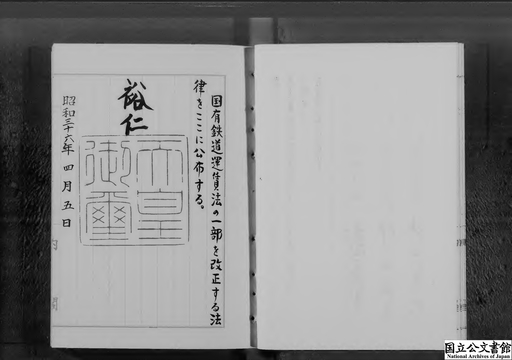 国有鉄道運賃法の一部を改正する法
律をここに公布する。
裕仁
天皇
御璽
昭和三十六年四月五日
国立公文書館
National Archives of Japan